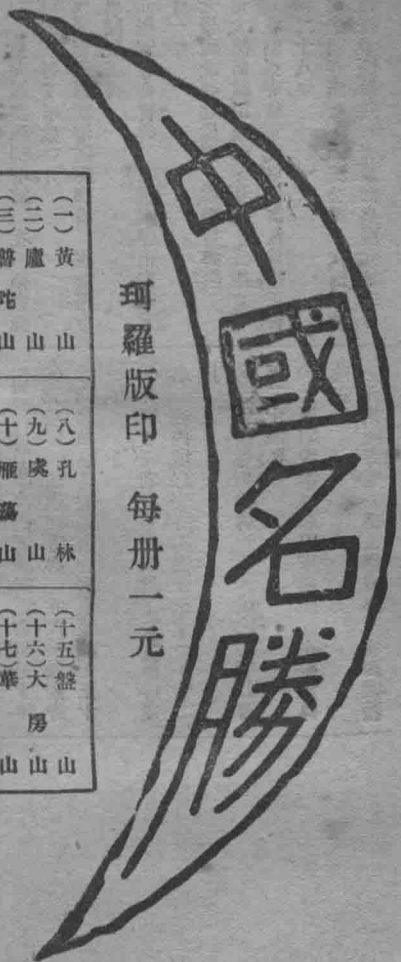 中國名勝
珂羅版印 每册一元
(一)黃山
(二)廬山
(三)普陀山
(八)孔林
(九)虞山
(十)雁蕩山
(十五)盤山
(十六)大房山
(十七)華山